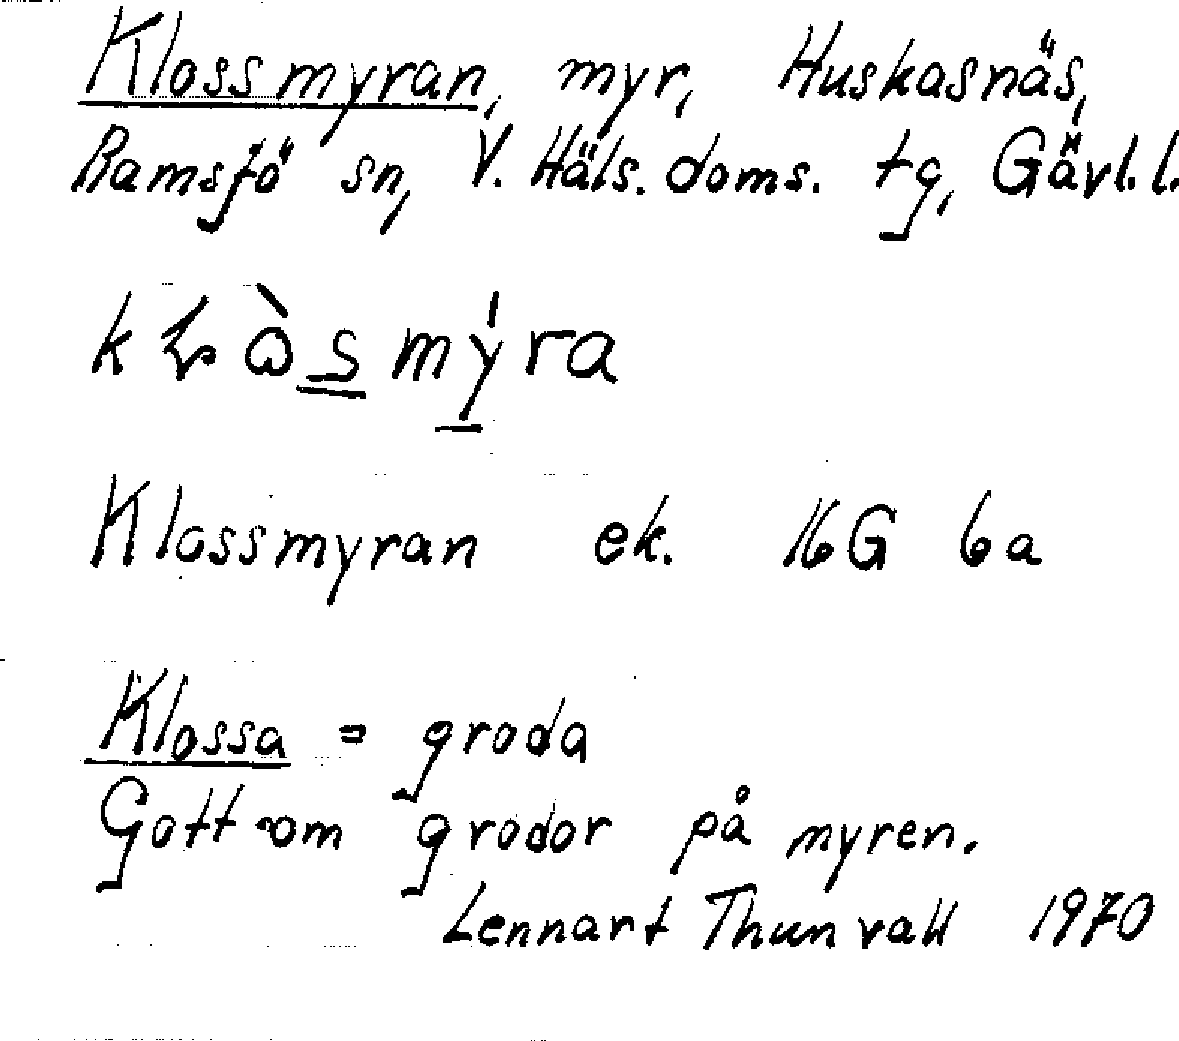 Klossmyran, myr, Huskasnäs,
Ramsjö sn, V. Häls. doms. tg, Gävl.l.
Klossmyran ek. 16G 6a
Klossa = groda
Gott om grodor på myren.
Lennart Thunvall 1970